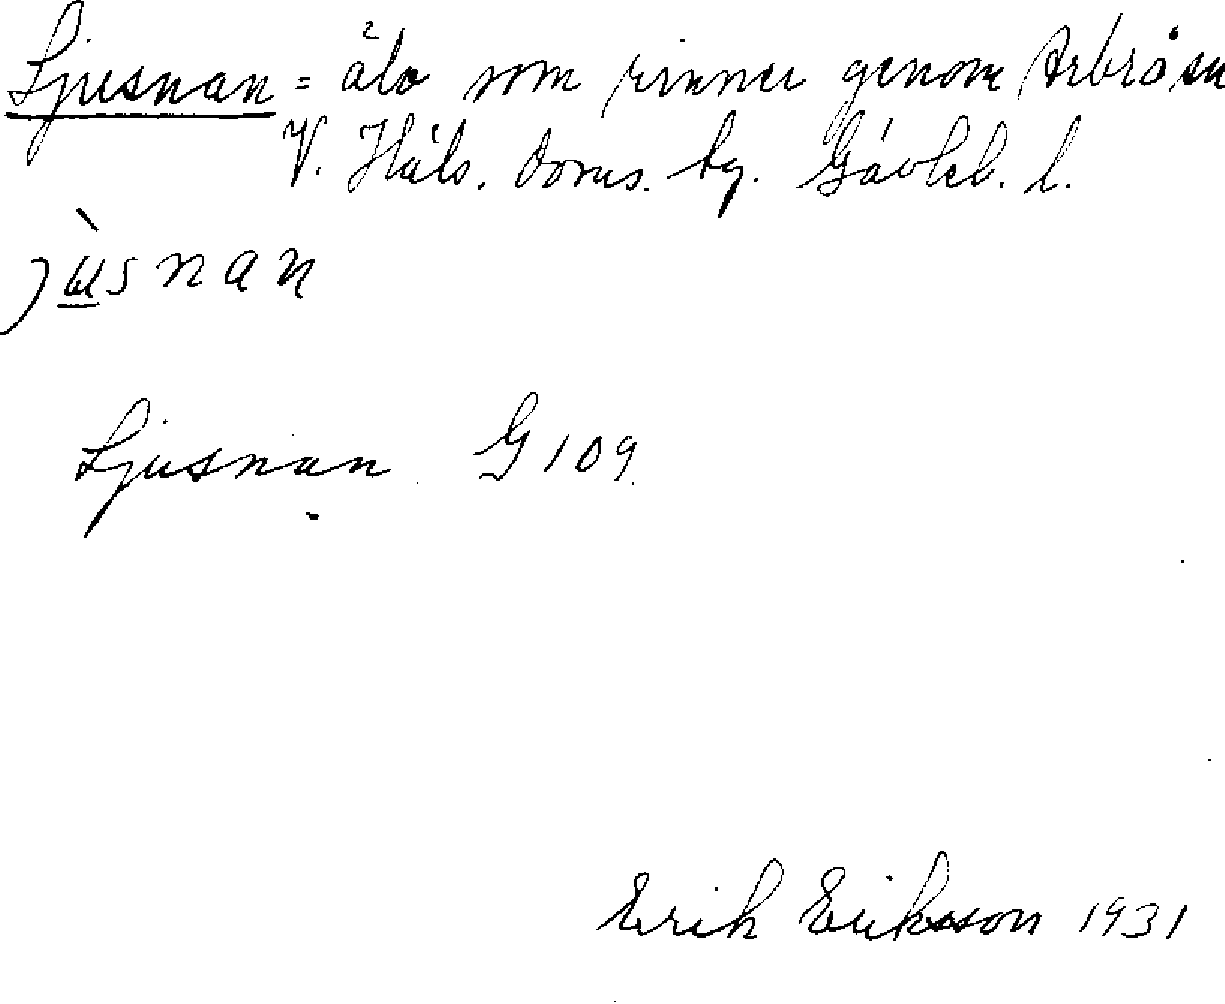 Ljusnan = älv som rinner genom Arbrå sn
V. Häls. Doms. tg. Gävleb. l.
jùsnan
Ljusnan G 109
Erik Eriksson 1931